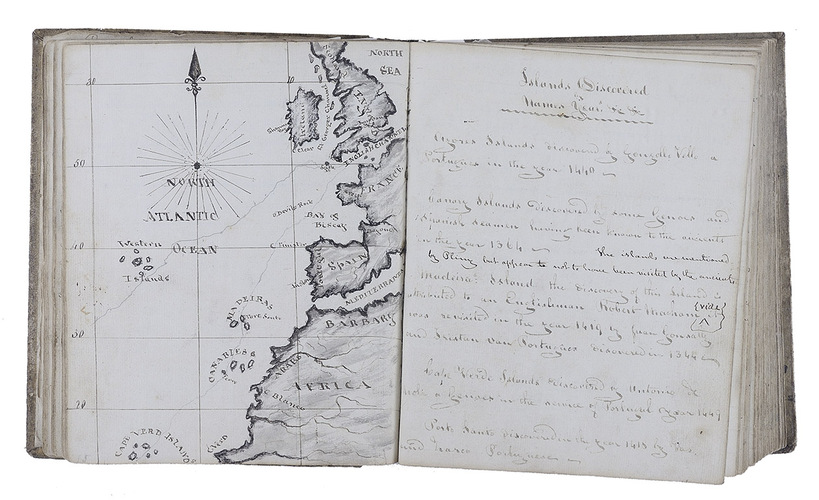 NORTH
SEA
ENGLISH CHANNEL
FRANCE
BAY of
BISCAY
NORTH
ATLANTIC
OCEAN
50
40
30
20
10
Western
Islands
C Finister
SPAIN
MEDITERRANEAN
MADEIRAS
Porto Santo
BARBARY
CANARIES
AFRICA
C Blanco
CAPE VERD ISLANDS
C Verd
Islands Discovered
Names Year &c &c
Azores Islands discovered by Gonzello Vello a
Portugues in the year 1440
Canary Islands Discovered by some Genoes and
Spanish seamen having been known to the ancients
in the year 1364
The islands mentioned
by Pliny but appears to not to have been visited by the ancients
Madeira Island the discovery of this Island is
attributed to an Englishman Robert Macham
(vide)
was revisited in the year 1419 by Juan Gonsalles
and Tristan Vaz Portugues discovered in 1344
Cape Verde Islands Discovered by Antonio de
Noli a Genoes in the service of Portugal year 1449
Porto Santo discovered in the year 1418 by Vas
and Zarco Portuguese